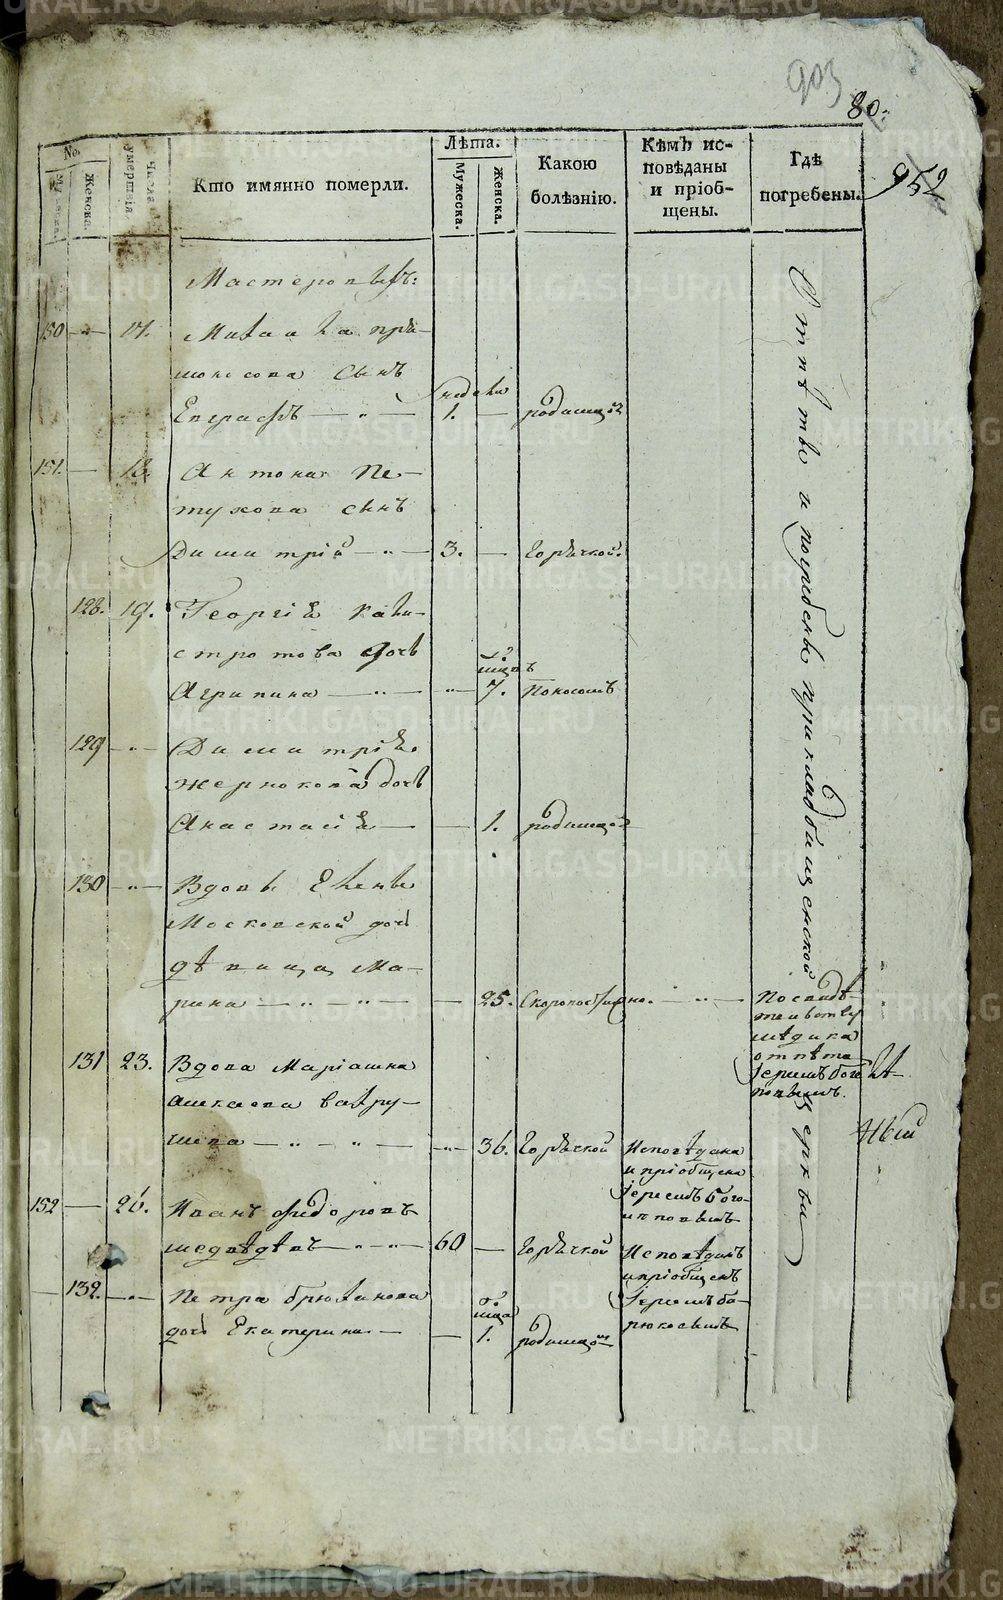 903
80.
952
No.
Мужеска.
Женска.
Числа умершія.
Кто имянно померли.
Лѣта.
Мужеска.
Женска.
Какою болѣзнію.
Кѣмъ исповѣданы и пріобщены.
Гдѣ погребены.
Мастеровыхъ:
150 — „ — 17. Михаила
сынъ
недели
Евграфъ — „ — 1. — родимцомъ
151. — 18. Антона Пе-
тухова сынъ
Димитрій — „ — 3. — Горячкой.
128. 19. Георгія Кали-
стратова дочь
Агрипина — „ — „ — 7. Поносомъ
129 — „ — Димитрія
Жернокова дочь
Анастасія — — 1. родимцомъ
130 — „ — Вдовы Елены
Московской дочь
дѣвица Ма-
рина — „ — „ — — 25. Скоропостижно. — „ —
По свидѣ-
тельству
медика
отпѣта
Іереемъ Бого-
131 23. Вдова Маріамна
шева — „ — „ — „ — 36. Горячкой
Исповѣдана
и пріобщена
Іереемъ Бого-
152 — 26. Иванъ Федоровъ
Медвѣдевъ — „ — „ — 60 — Горячкой
Исповѣданъ
и пріобщенъ
Іереемъ Би-
рюковымъ
132. — „ — Петра Брюханова
дочь Екатерина. — — 1. родимцомъ
Отпѣты и погребены при кладбищенской церкви